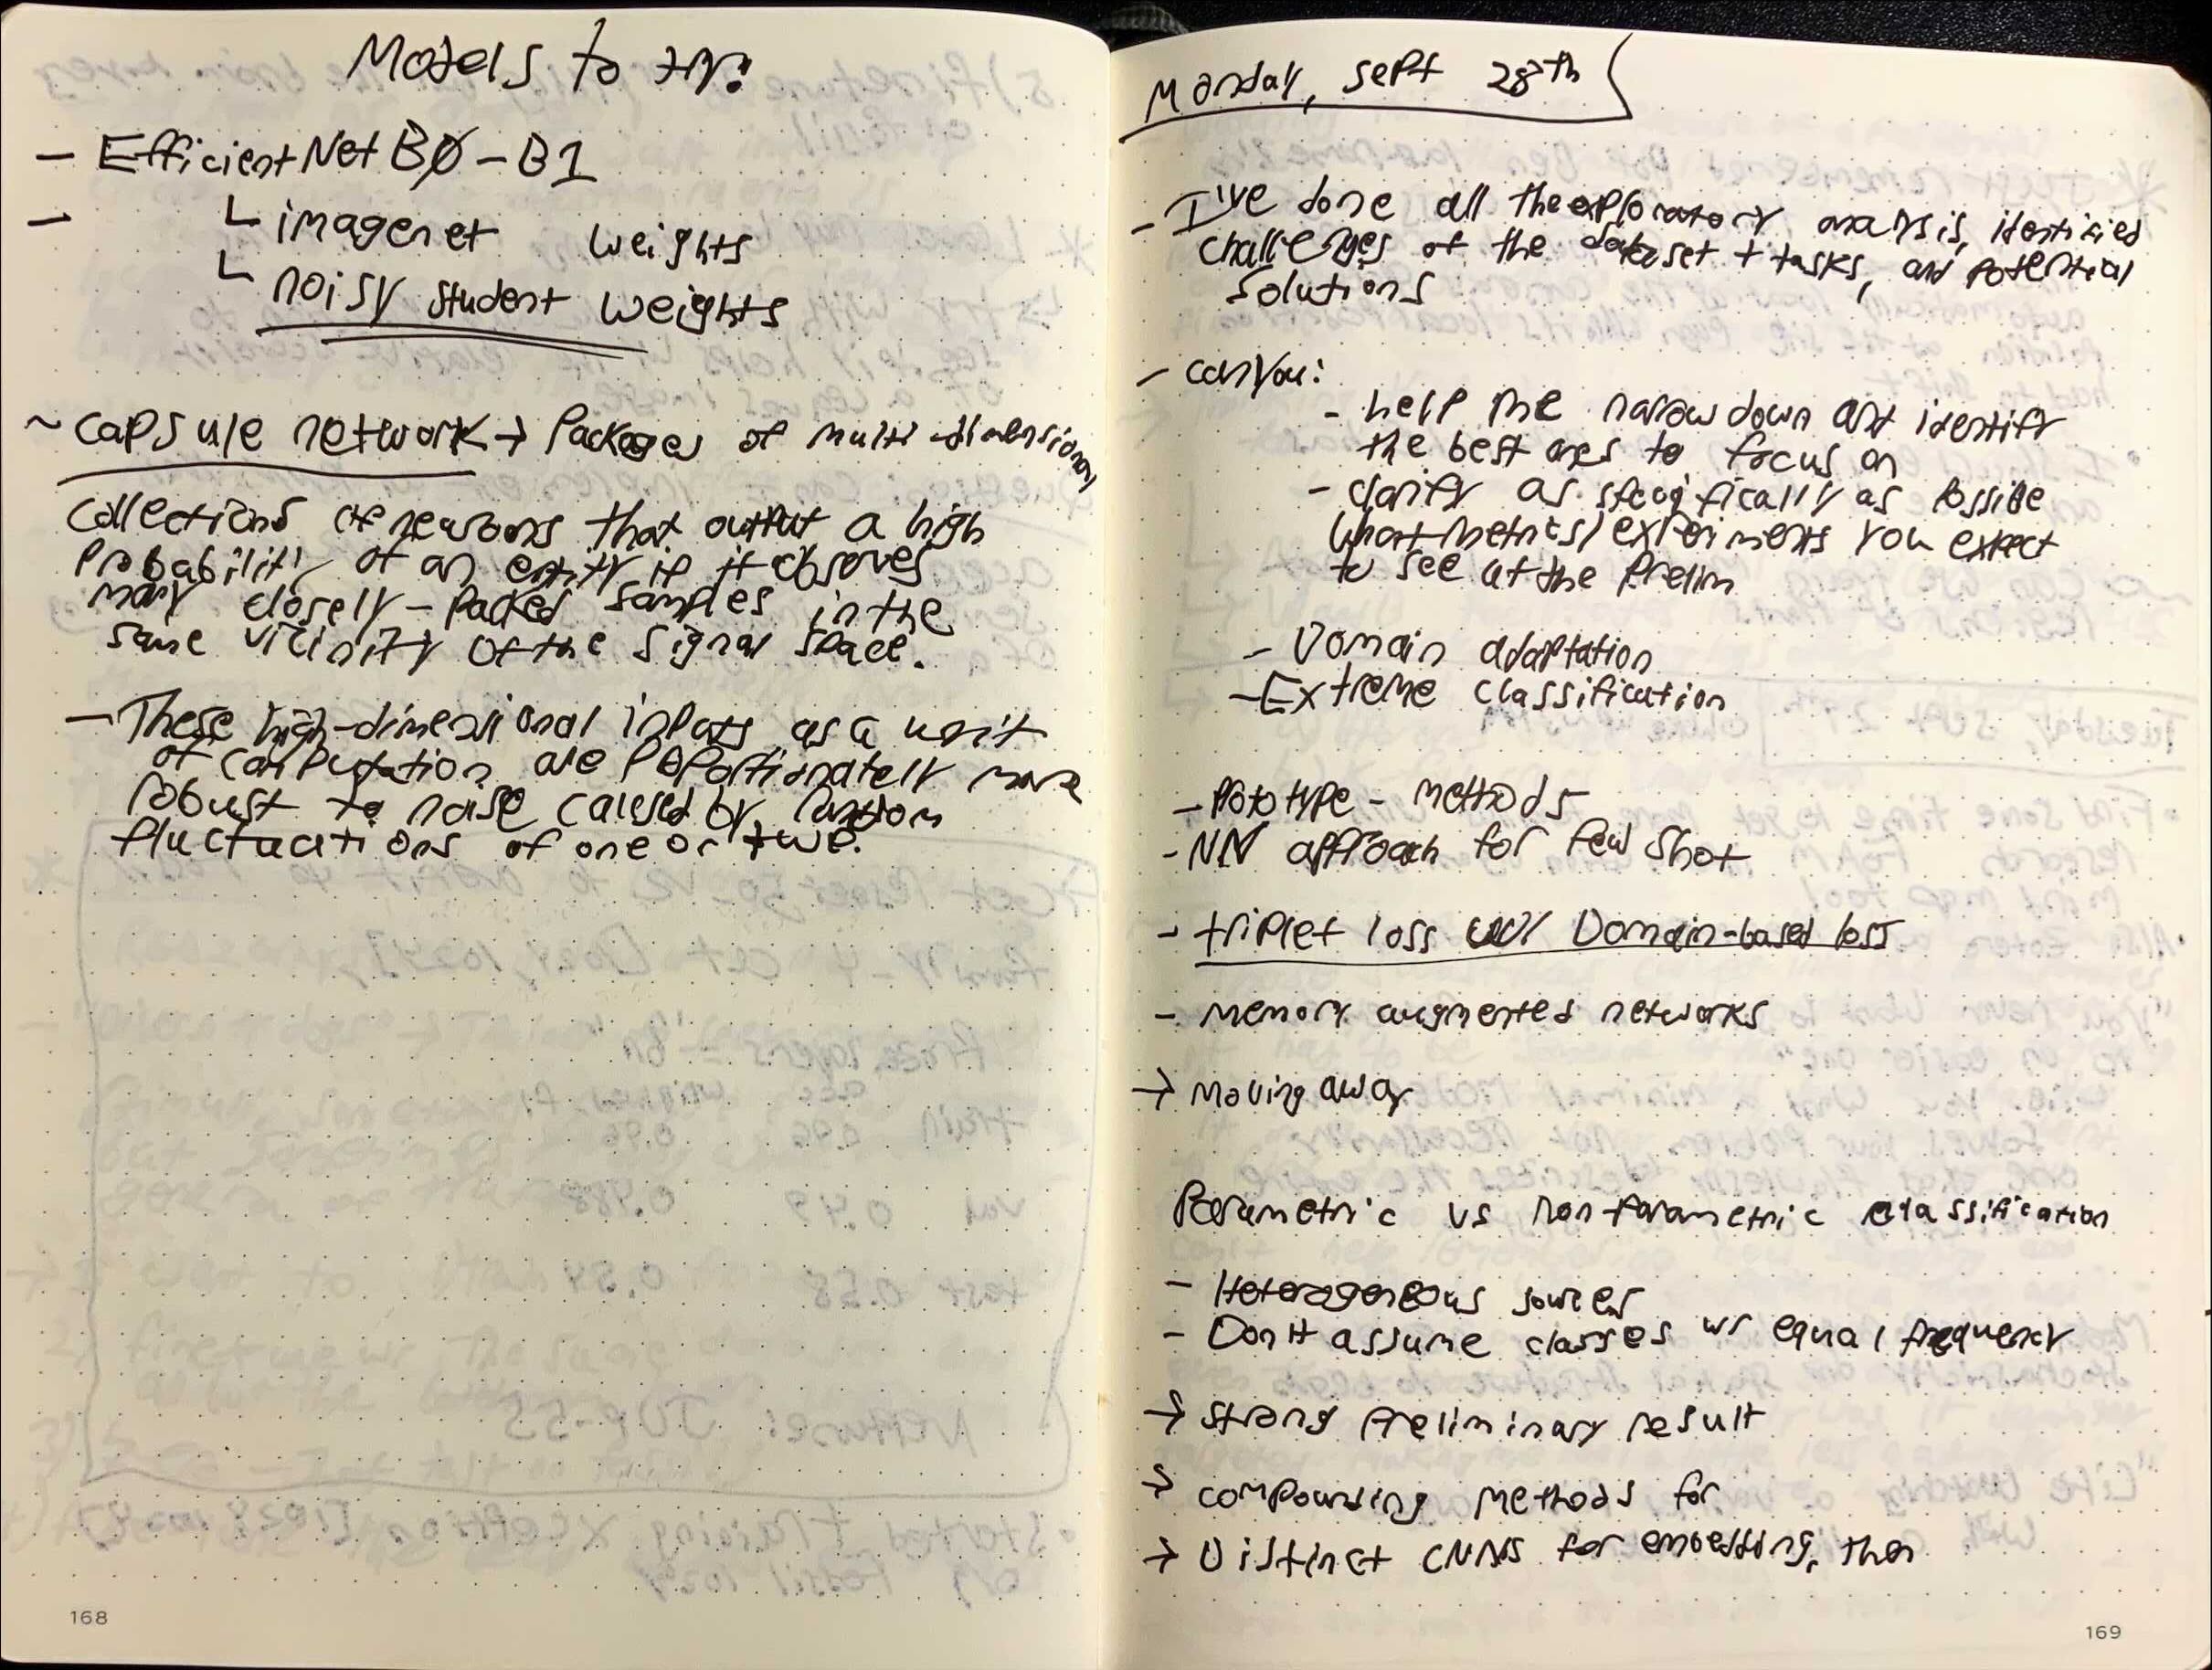 Models to try:
- EfficientNet B0 - B1
- └ imagenet weights
└ noisy student weights
~ capsule network → Packages of multi-dimensional
collections of neurons that output a high
probability of an entity if it observes
many closely-packed samples in the
same vicinity of the signal space.
- These high-dimensional inputs as a unit
of computation are proportionately more
robust to noise caused by random
fluctuations of one or two.
168
Monday, Sept 28th
- I've done all the exploratory analysis, identified
challenges of the dataset + tasks, and potential
solutions
- can you:
- help me narrow down and identify
the best ones to focus on
- clarify as specifically as possible
what metrics/experiments you expect
to see at the prelim
- Domain adaptation
- Extreme classification
- Prototype - methods
- NN approach for few shot
- triplet loss w/ Domain-based loss
- Memory augmented networks
→ Moving away
Parametric vs non parametric classification
- Heterogeneous sources
- Don't assume classes w/ equal frequency
→ strong preliminary result
→ compounding methods for
→ Distinct CNNs for embedding, then
169